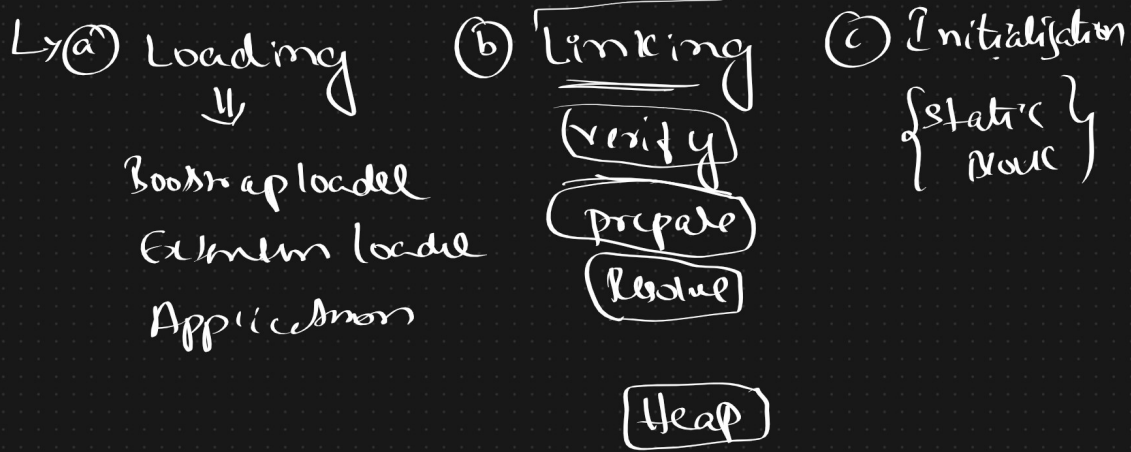 ↳ (a) Loading
⇓
Bootstrap loader
Extension loader
Application
(b) Linking
(verify)
prepare
Resolve
Heap
(c) Initialisation
{static
block}